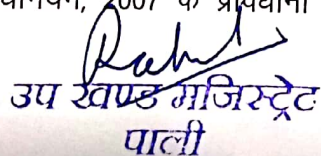 2007 के
Rahul
उप खण्ड मजिस्ट्रेट
पाली